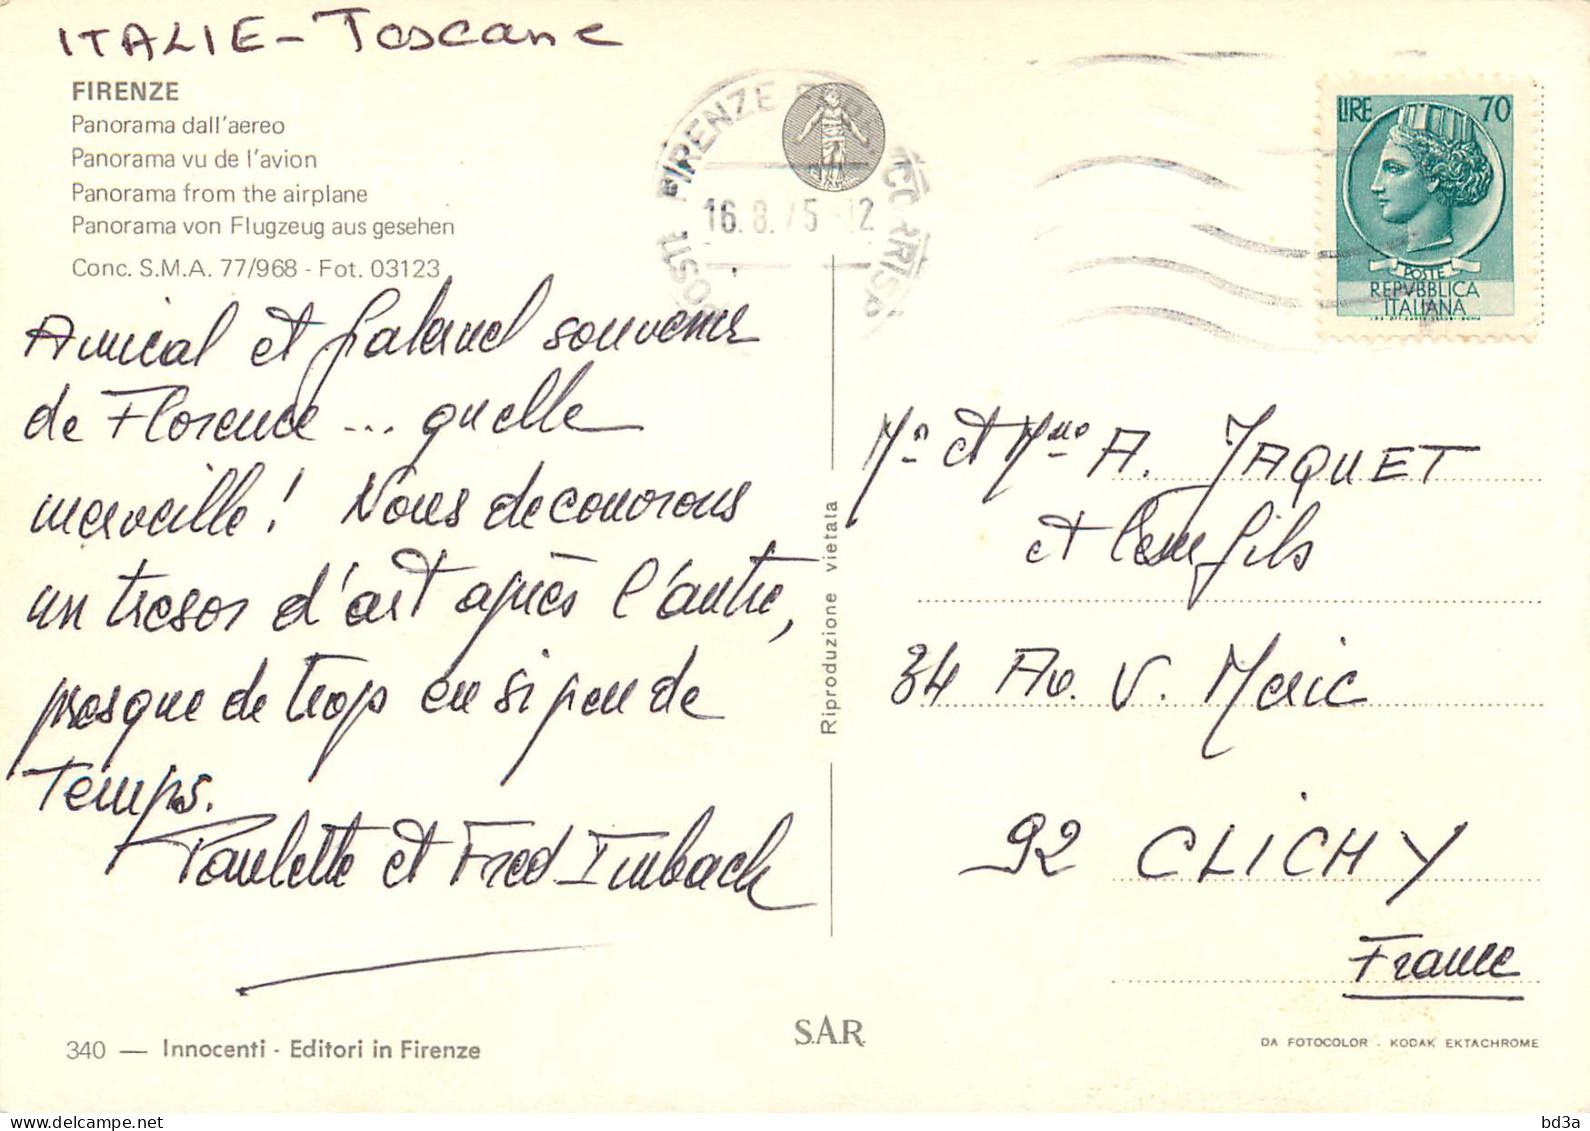 ITALIE - Toscane
FIRENZE
Panorama dall'aereo
Panorama vu de l'avion
Panorama from the airplane
Panorama von Flugzeug aus gesehen
Conc. S.M.A. 77/968 - Fot. 03123
Amical et paternel souvenir
de Florence ... quelle
merveille! Nous decouvrons
un tresor d'art après l'autre,
presque de trop en si peu de
temps.
Paulette et Fred Imbach
340 — Innocenti - Editori in Firenze
FIRENZE
16.8.75 12
POSTA
LIRE 70
POSTE
REPVBBLICA
ITALIANA
Riproduzione vietata
S.A.R.
Mr et Mme A. JAQUET
et leur fils
34 Av. V. Meric
92 CLICHY
France
DA FOTOCOLOR - KODAK EKTACHROME
bd3a